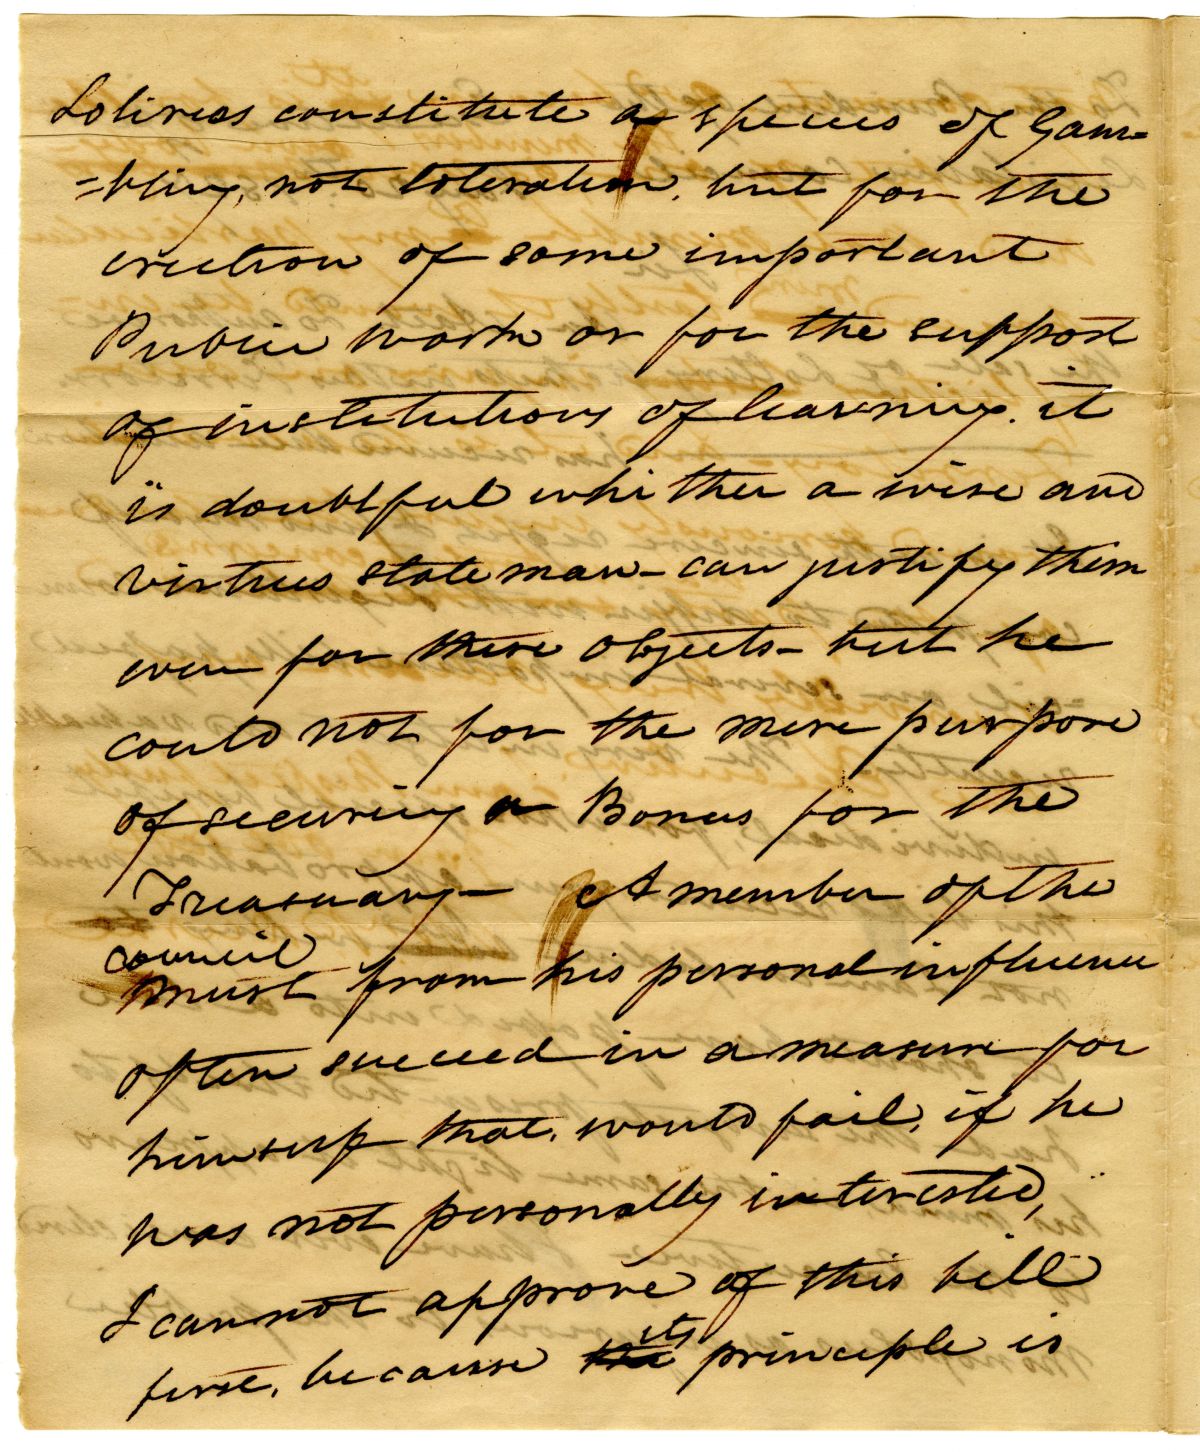 Lotiries constitute a species of Gam=
=bling, not toleration, but for the
erection of some important
Public work or for the support
of institutions of learning. it
is doubtful whither a wise and
virtues state man - can justify them
even for these objects - but he
could not for the mere purpose
of securing a Bonus for the
Treasuary - A member of the
council
must from his personal influence
often succeed in a measure for
himself that, would fail, if he
was not personally interested,
I cannot approve of this bill
its
first, because the principle is